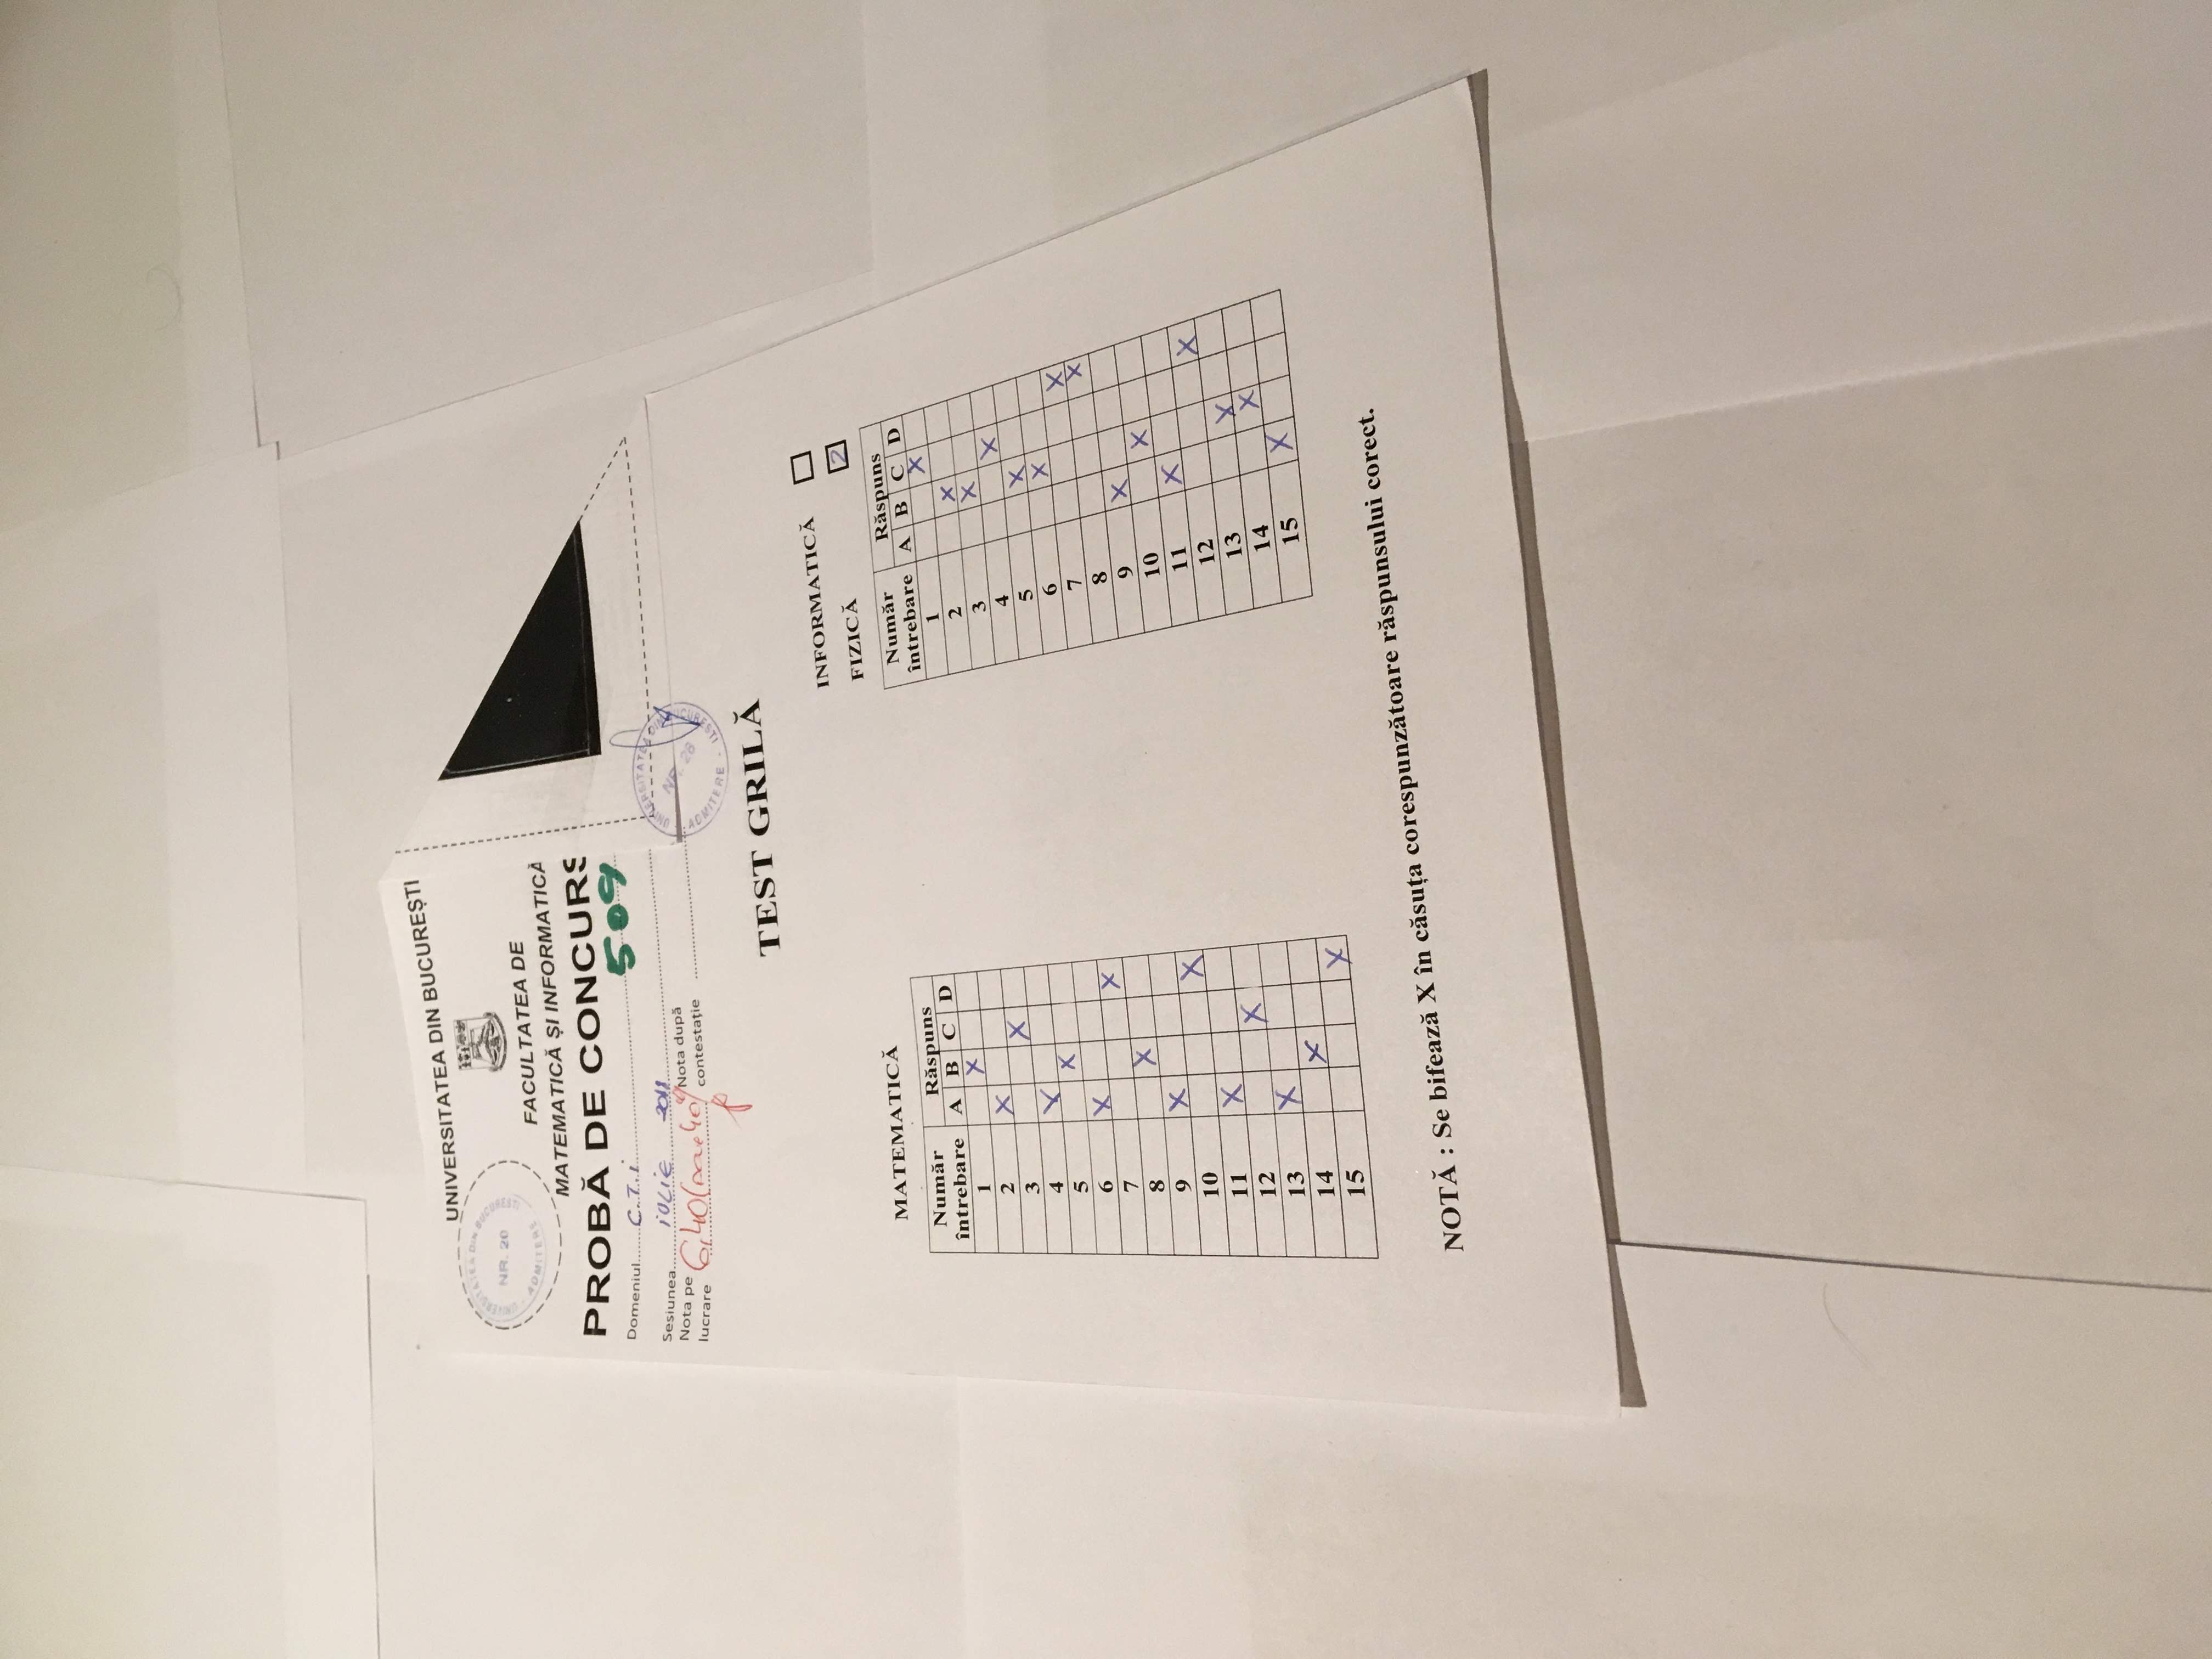 UNIVERSITATEA DIN BUCUREȘTI
UNIVERSITATEA DIN BUCUREȘTI
NR. 20
ADMITERE
FACULTATEA DE
MATEMATICĂ ȘI INFORMATICĂ
PROBĂ DE CONCURS
Domeniul C.T.i 509
Sesiunea iulie 2018
Nota pe lucrare 6,40 Nota după contestație
UNIVERSITATEA DIN BUCUREȘTI
NR. 28
ADMITERE
TEST GRILĂ
INFORMATICĂ
FIZICĂ 2
MATEMATICĂ
Număr întrebare Răspuns
A B C D
1 X
2 X
3 X
4 X
5 X
6 X
7 X
8 X
9 X
10 X
11 X
12 X
13 X
14 X
15 X
Număr întrebare Răspuns
A B C D
1 X
2 X
3 X
4 X
5 X
6 X
7 X
8 X
9 X
10 X
11 X
12 X
13 X
14 X
15 X
NOTĂ : Se bifează X în căsuța corespunzătoare răspunsului corect.